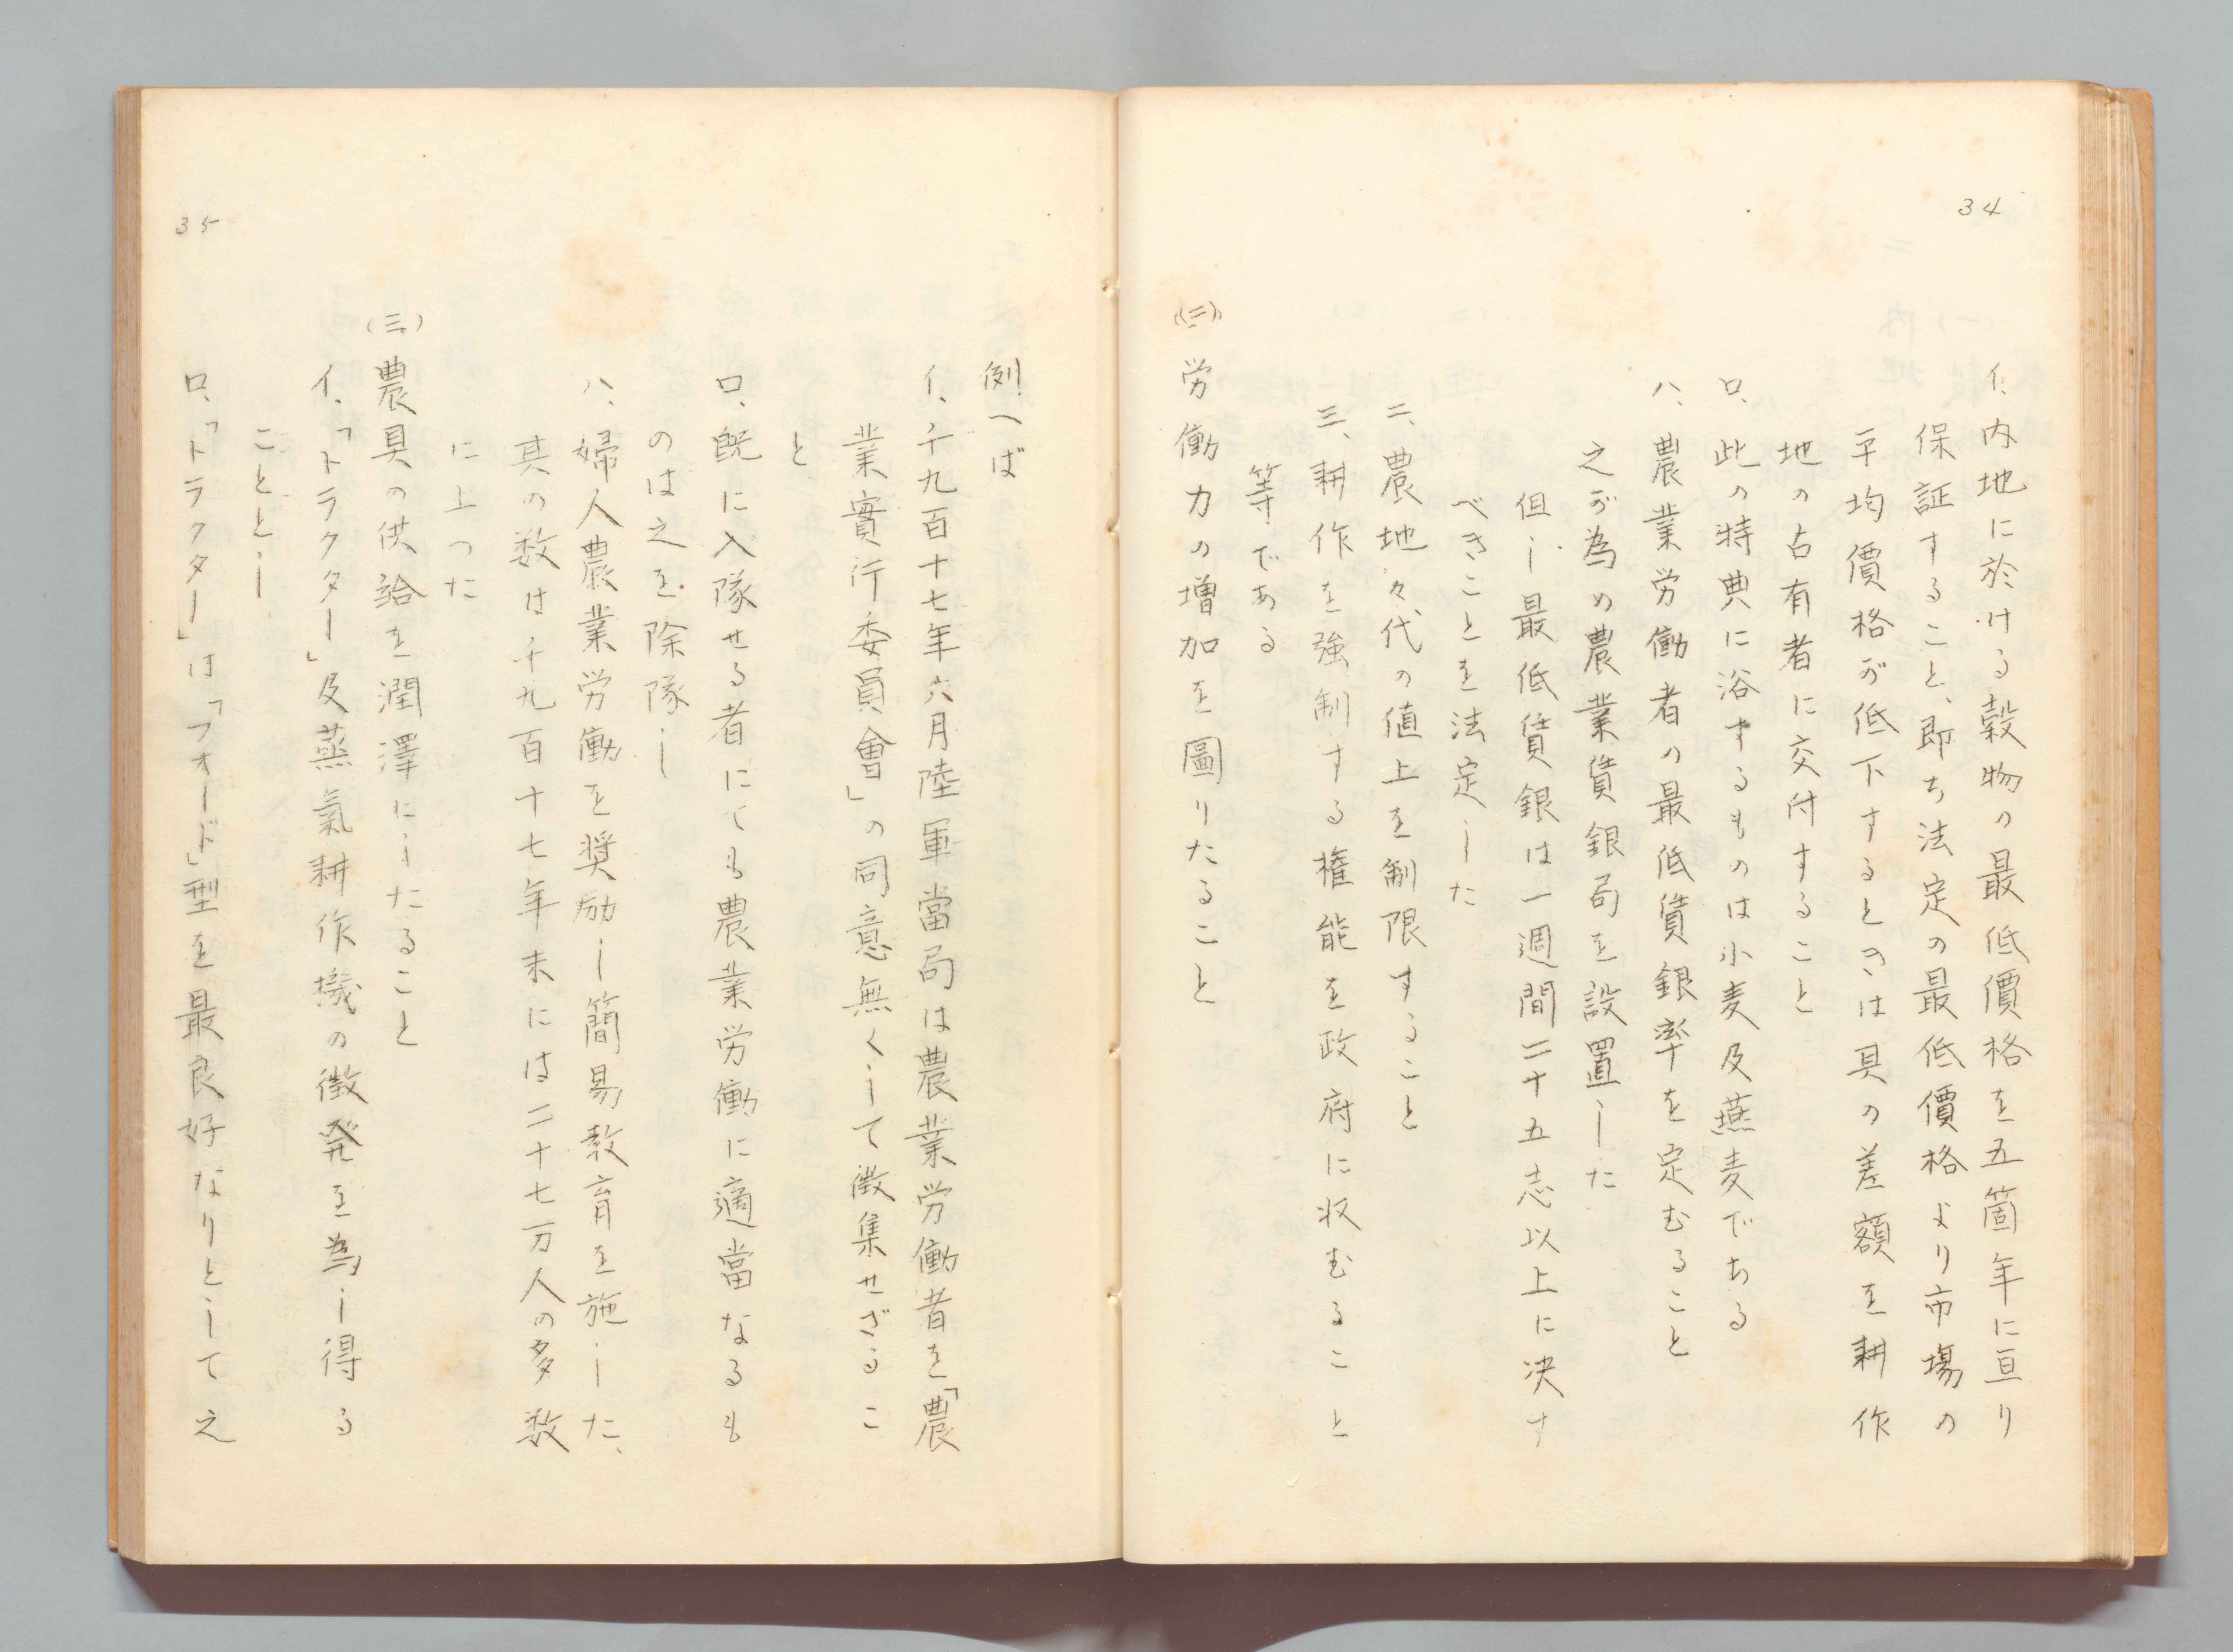 34
イ、内地に於ける穀物の最低價格を五箇年に亘り
保証すること、即ち法定の最低價格より市場の
平均價格が低下するときは其の差額を耕作
地の占有者に交付すること
ロ、此の特典に浴するものは小麦及燕麦である
ハ、農業労働者の最低賃銀率を定むること
之が為め農業賃銀局を設置した
但し最低賃銀は一週間二十五志以上に決す
べきことを法定した
二、農地々代の値上を制限すること
三、耕作を強制する権能を政府に収むること
等である
(二)労働力の増加を圖りたること
例へば
イ、千九百十七年六月陸軍當局は農業労働者を「農
業實行委員會」の同意無くして徴集せざるこ
と
ロ、既に入隊せる者にても農業労働に適當なるも
のは之を除隊し
ハ、婦人農業労働を奨励し簡易教育を施した、
其の数は千九百十七年末には二十七万人の多数
に上つた
(三)農具の供給を潤澤にしたること
イ、「トラクター」及蒸氣耕作機の徴発を為し得る
こととし
ロ、「トラクター」は「フォード」型を最良好なりとして之
35